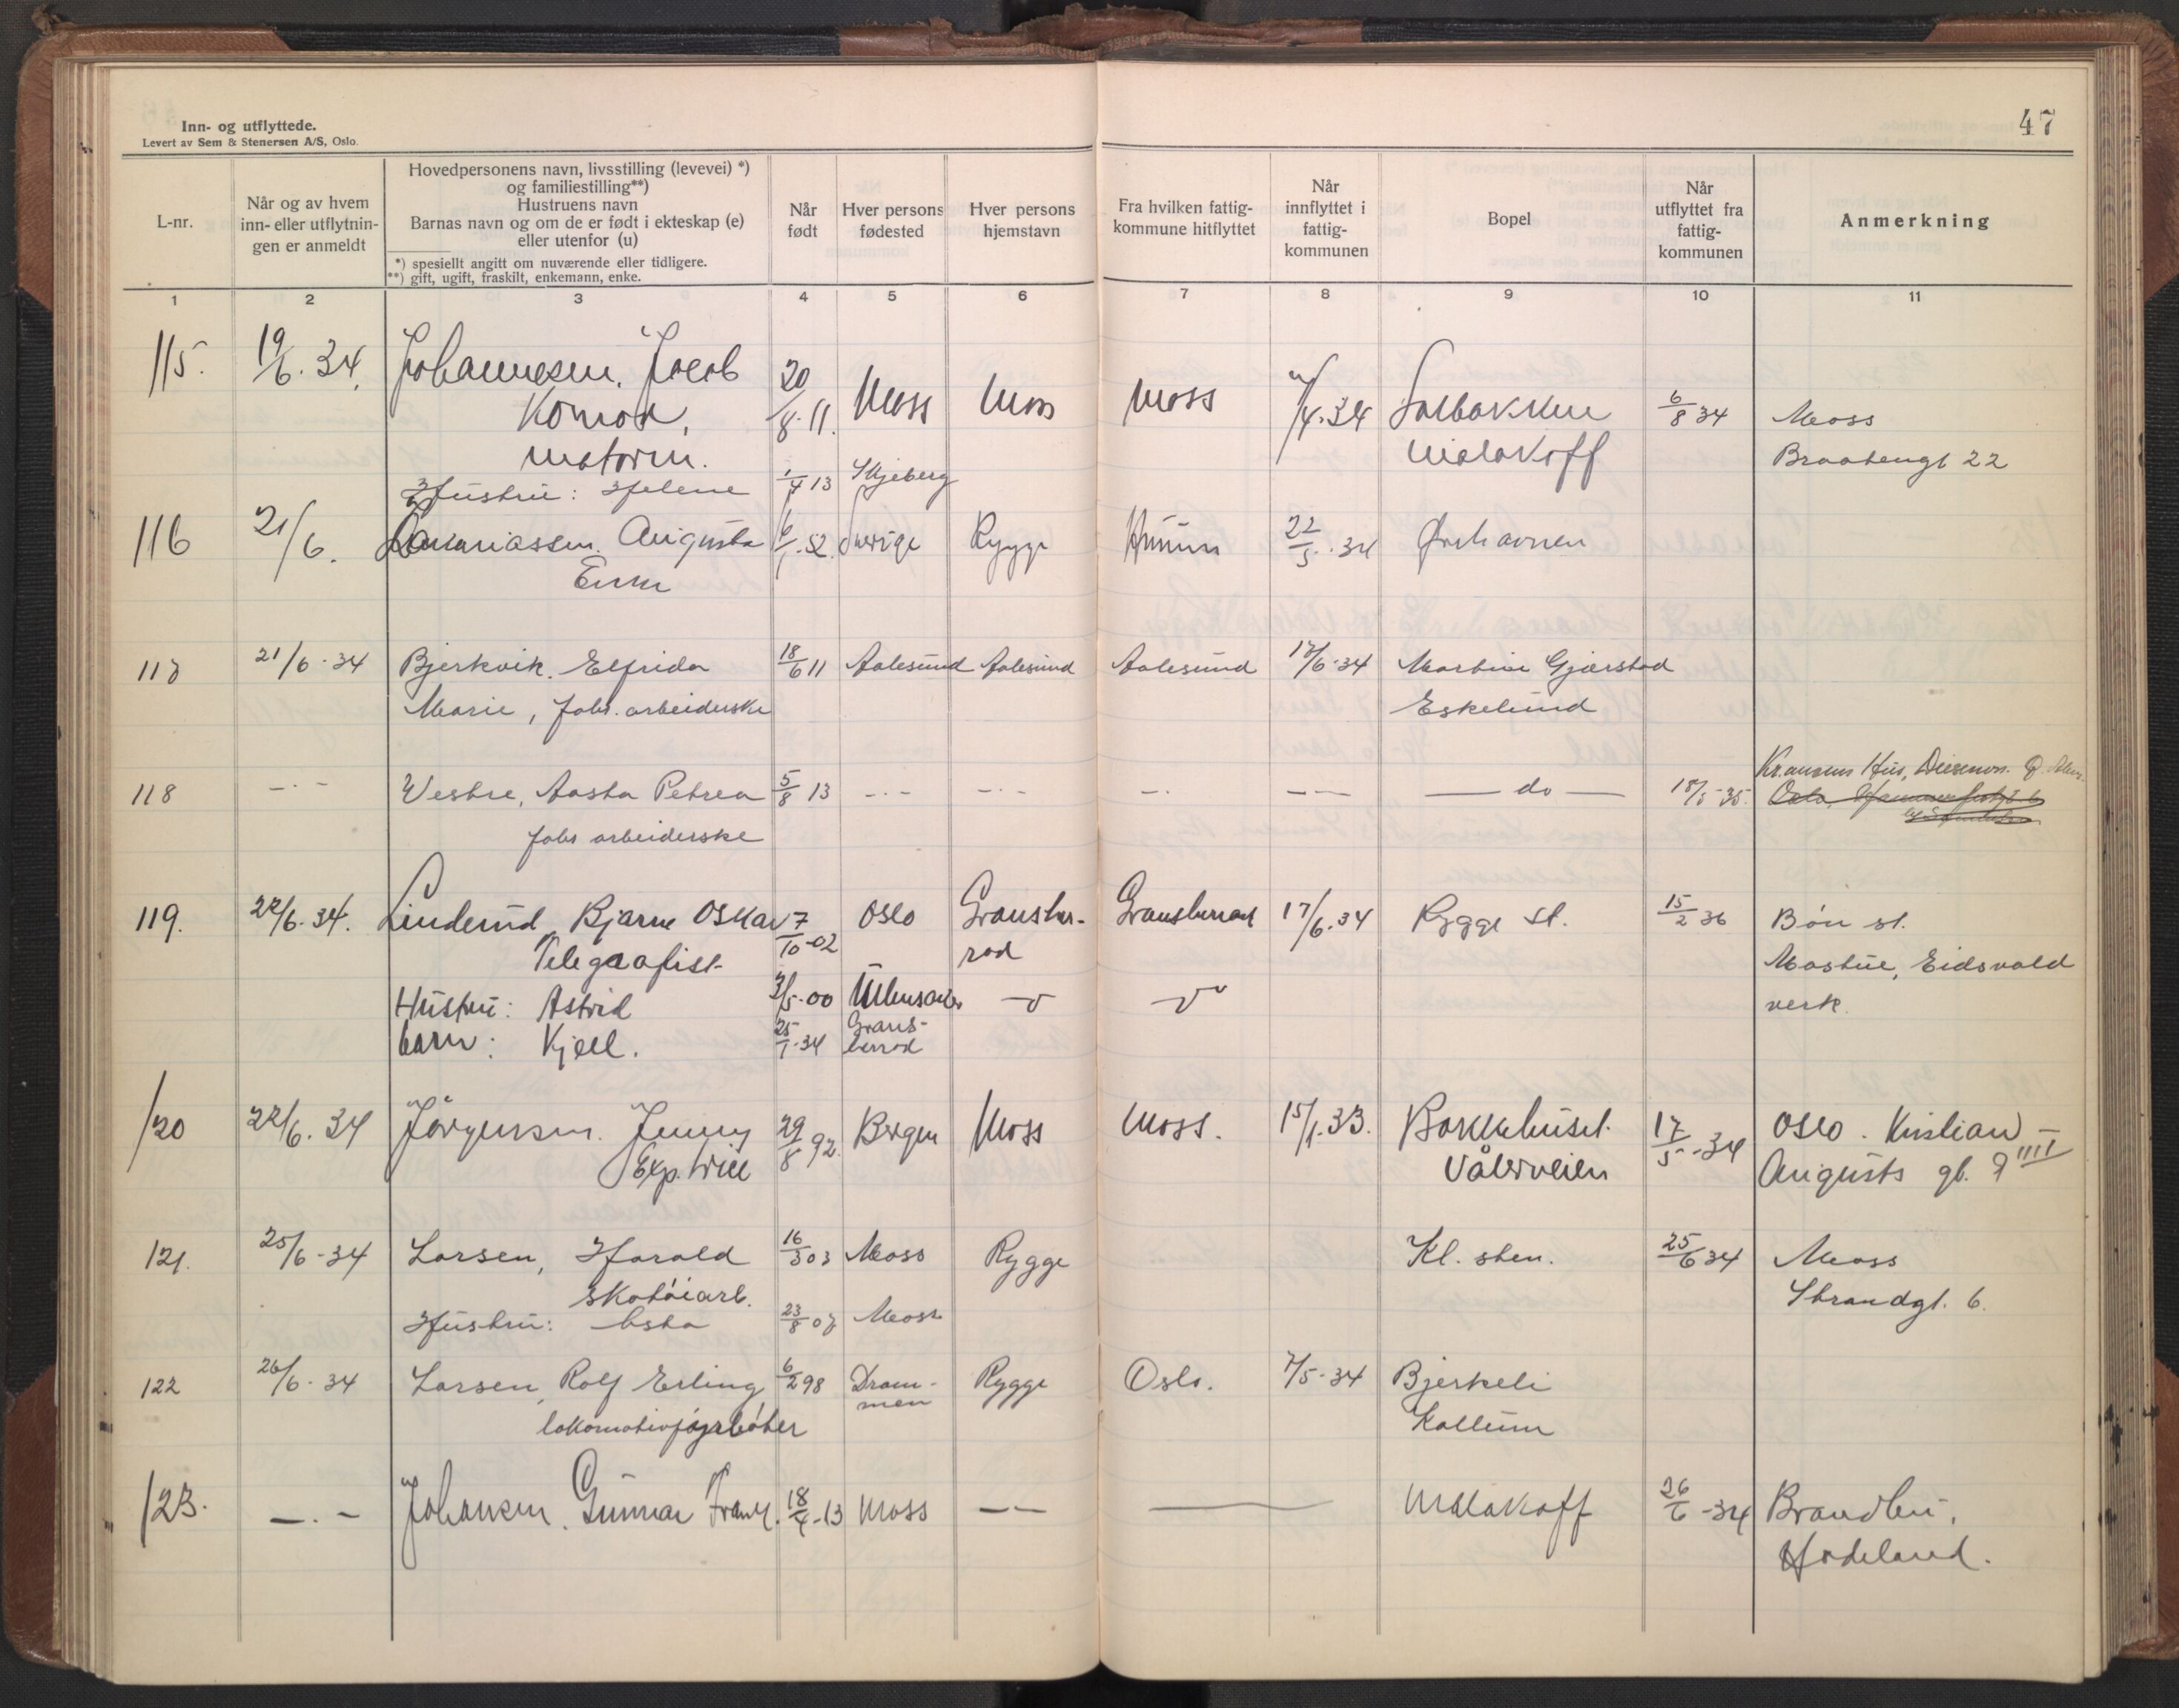 Inn- og utflyttede.
Levert av Sem & Stenersen A/S, Oslo.
47
L-nr.
Når og av hvem
inn- eller utflytnin-
gen er anmeldt
Hovedpersonens navn, livsstilling (levevei) *)
og familiestilling**)
Hustruens navn
Barnas navn og om de er født i ekteskap (e)
eller utenfor (u)
*) spesiellt angitt om nuværende eller tidligere.
**) gift, ugift, fraskilt, enkemann, enke.
Når
født
Hver persons
fødested
Hver persons
hjemstavn
Fra hvilken fattig-
kommune hitflyttet
Når
innflyttet i
fattig-
kommunen
Bopel
Når
utflyttet fra
fattig-
kommunen
Anmerkning
1 2 3 4 5 6 7 8 9 10 11
115. 19/6. 34. Johannesen. Jacob 20/8. 11. Moss Moss Moss /4. 34 Solbakken 6/8 34 Moss
Konrad,
matorm. Malakoff Braatengt 22
Hustru: Helene 1/4 13 Skjeberg
116 21/6. Augusta 6/1. 52. Sverige Rygge 22/5. 34 Ørehavnen
Enke
117 21/6. 34 Bjerkvik. Elfrida 18/6 11 Aalesund Aalesund Aalesund 12/6. 34 Martin Gjærstad
Marie, fabr. arbeiderske Eskelund
118 -.- Vestre, Aasta Petrea 5/8 13 -.- -.- -.- -.- — do — 18/5 35. Hus,
fabr arbeiderske Oslo,
119. 22/6. 34. Linderud, Bjarne Oskar 7/10-02 Oslo Gransher-rad Gransherrad 17/6. 34 Rygge st. 15/2 36 Bøn st.
Telegrafist Mastue, Eidsvold
Hustru: Astrid 3/5-00 Ullensaker verk.
barn: Kjell. 25/1-34 Grans-
herrad
120 22/6. 34 Jörgensen. Jenny 29/8 92. Bergen Moss Moss. 15/1. 33. Bakkehuset. 17/5-34 Oslo. Kristian
Exp. trise Vålerveien Augusts gt. 9 IIII
121. 25/6-34 Larsen, Harald 16/3 03 Moss Rygge Kl. sten. 25/6 34 Moss
skotøiarb. Strandgt. 6.
Hustru: Esta 23/8 07 Moss
122 26/6-34 Larsen, Rolf Erling 6/2 98 Dram- Rygge Oslo. 7/5-34 Bjerkeli
men
lokomotivfyrbøter Kallum
123. -.- Johansen. Gunnar Frank. 18/4-13 Moss -- — Malakoff 26/6-34 Brandbu,
Hadeland.